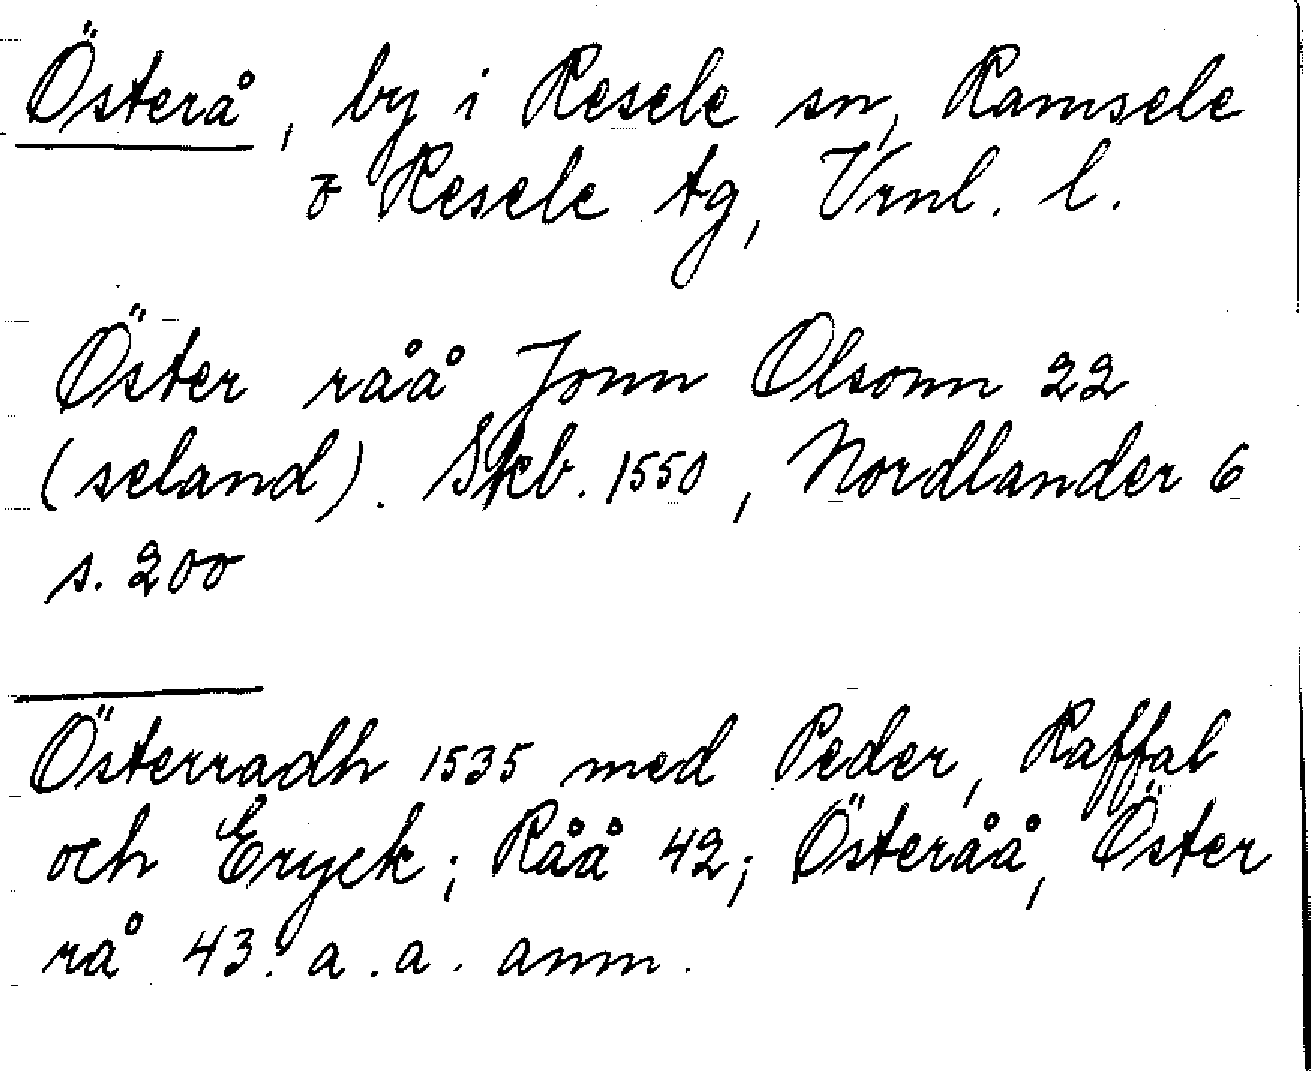 Österå, by i Resele sn, Ramsele
o Resele tg, Vrnl. l.
Öster råå Jonn Olsonn 22
(seland). Skb. 1550, Nordlander 6
s. 200
Österradh 1535 med Peder, Raffal
och Eryck; Råå 42; Österåå, Öster
rå 43. a.a. anm.